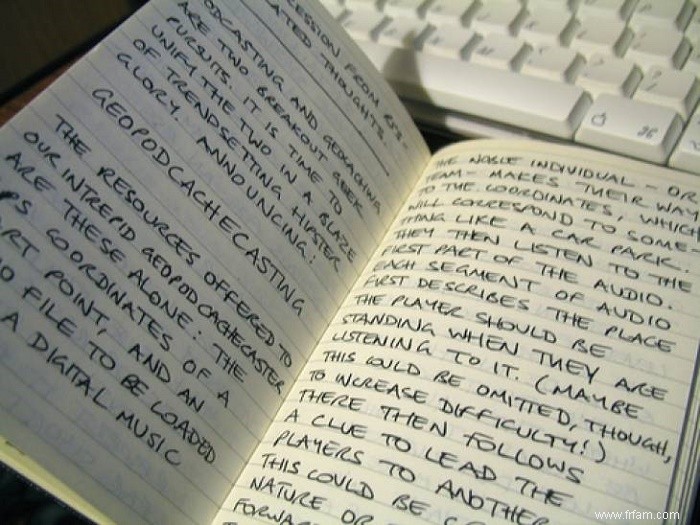 CESSION FROM
ATED THOUGHTS.
ODCASTING AND GEOCACHING
ARE TWO BREAKOUT GEEK
PURSUITS. IT IS TIME TO
UNIFY THE TWO IN A BLAZE
OF TRENDSETTING HIPSTER
GLORY. ANNOUNCING:
GEOPODCACHECASTING
THE RESOURCES OFFERED TO
OUR INTREPID GEOPODCACHECASTER
ARE THESE ALONE: THE
PS COORDINATES OF A
ART POINT, AND AN
IO FILE TO BE LOADED
A DIGITAL MUSIC
THE NOBLE INDIVIDUAL - OR
TEAM - MAKES THEIR WAY
TO THE COORDINATES, WHICH
WILL CORRESPOND TO SOME-
THING LIKE A CAR PARK.
THEY THEN LISTEN TO THE
FIRST PART OF THE AUDIO.
EACH SEGMENT OF AUDIO
FIRST DESCRIBES THE PLACE
THE PLAYER SHOULD BE
STANDING WHEN THEY ARE
LISTENING TO IT. (MAYBE
THIS COULD BE OMITTED, THOUGH,
TO INCREASE DIFFICULTY!)
THERE THEN FOLLOWS
A CLUE TO LEAD THE
PLAYERS TO ANOTHER
THIS COULD BE
NATURE OR
FORWA
www.frfam.com